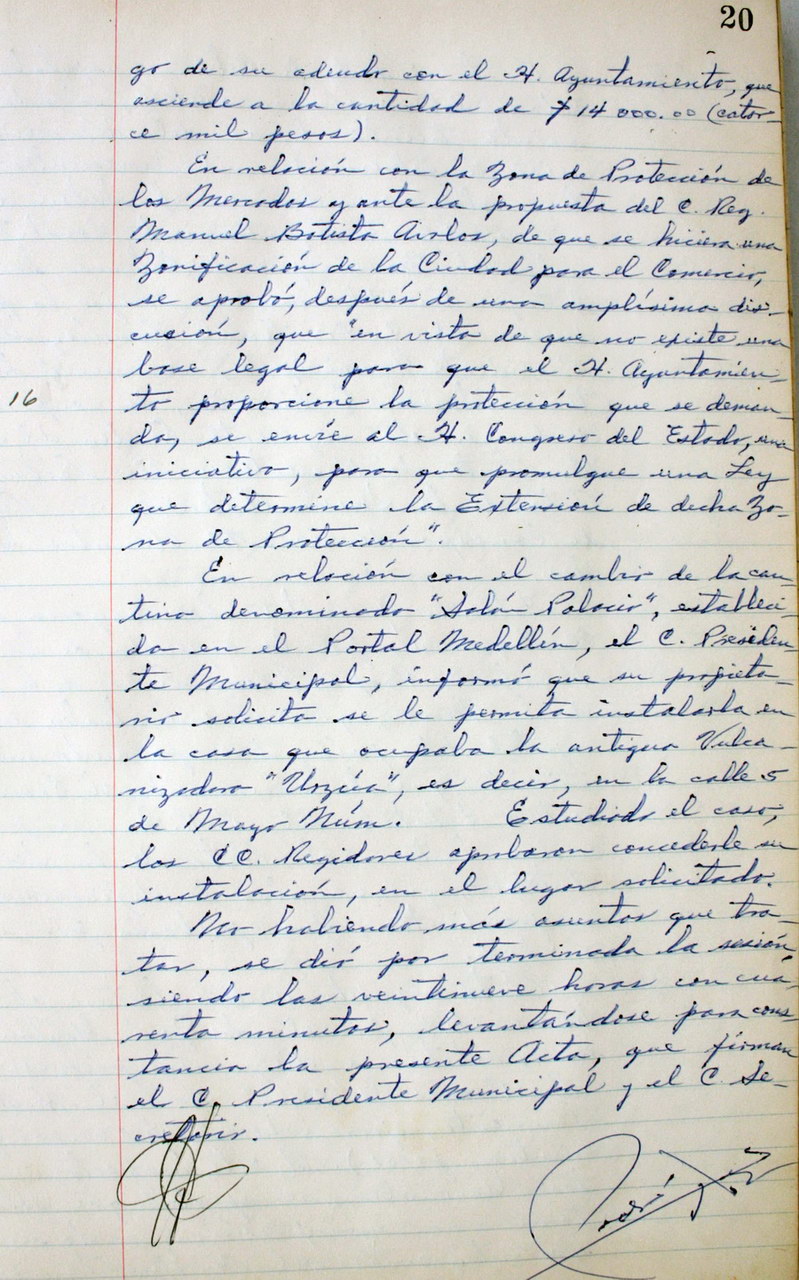 20
go de su adeudo con el H. Ayuntamiento, que
asciende a la cantidad de $14 000.00 (cator-
ce mil pesos).
En relación con la Zona de Protección de
los Mercados y ante la propuesta del C. Reg.
Manuel Batista Avalos, de que se hiciera una
Zonificación de la Ciudad para el Comercio,
se aprobó, después de una amplísima dis-
cusión, que "en vista de que no existe una
base legal para que el H. Ayuntamien-
16
to proporcione la protección que se deman-
da, se envíe al H. Congreso del Estado, una
iniciativa, para que promulgue una Ley
que determine la Extensión de dicha Zo-
na de Protección".
En relación con el cambio de la can-
tina denominada "Salón Palacio", estableci-
da en el Portal Medellín, el C. Presiden-
te Municipal, informó que su propieta-
rio solicita se le permita instalarla en
la casa que ocupaba la antigua Vulca-
nizadora "Urzúa", es decir, en la calle 5
de Mayo Núm. Estudiado el caso,
los CC. Regidores aprobaron concederle su
instalación, en el lugar solicitado.
No habiendo más asuntos que tra-
tar, se dió por terminada la sesión,
siendo las veintinueve horas con cua-
renta minutos, levantándose para cons-
tancia la presente Acta, que firman
el C. Presidente Municipal y el C. Se-
cretario.